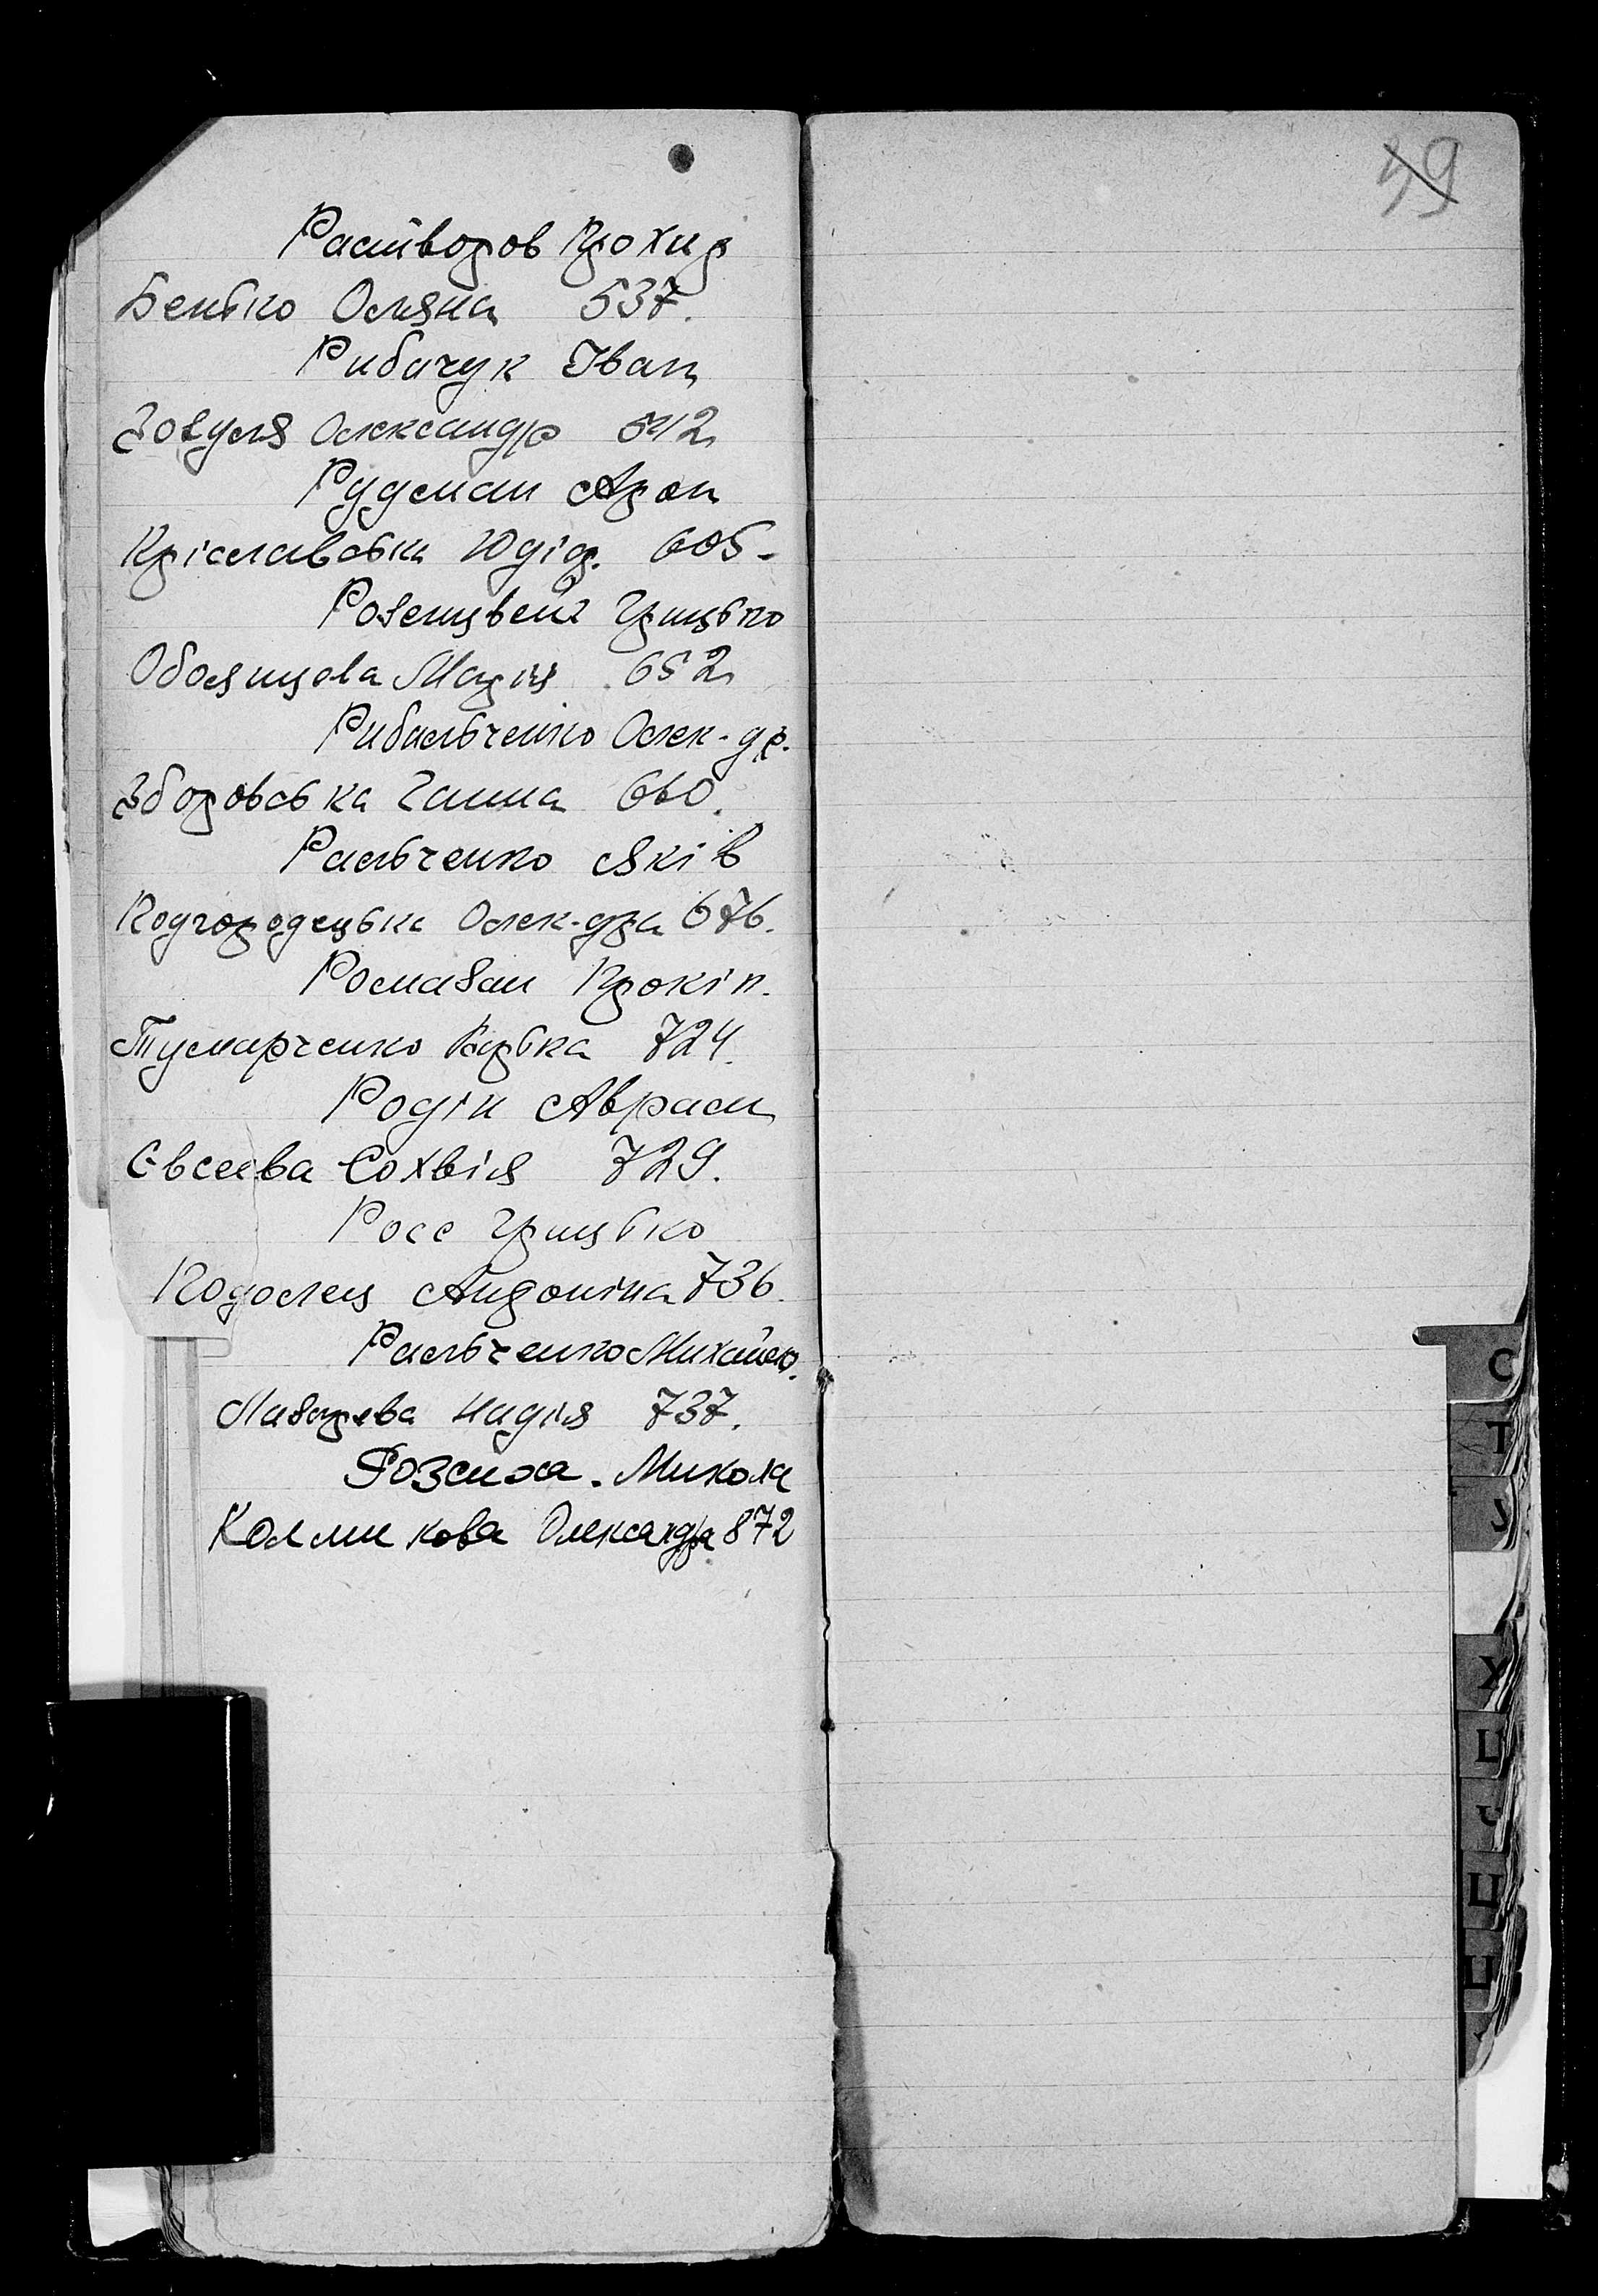 49
Растворов Прохир
Бенько Оляна 537.
Рибачук Іван
Зозуля Олександр 542
Рудман Арон
Кріславська Юдід. 605-
Розенцвейг Грицько
Оболянцева Марія 652
Рибальченко Олек-др.
Зборовська Ганна 660.
Ральченко Яків
Подгородецька Олек-дра 676.
Ромазан Прокіп.
Тумарченко Рівка 724.
Родін Аврам
Євсеева Сохвія 729.
Росс Грицько
Подолец Андоніна 736.
Ральченко Михайло.
Лазарева Надія 737.
Розсиха. Микола
Колмикова Олександра 872
С
Т
У
Х
Ц
Ч